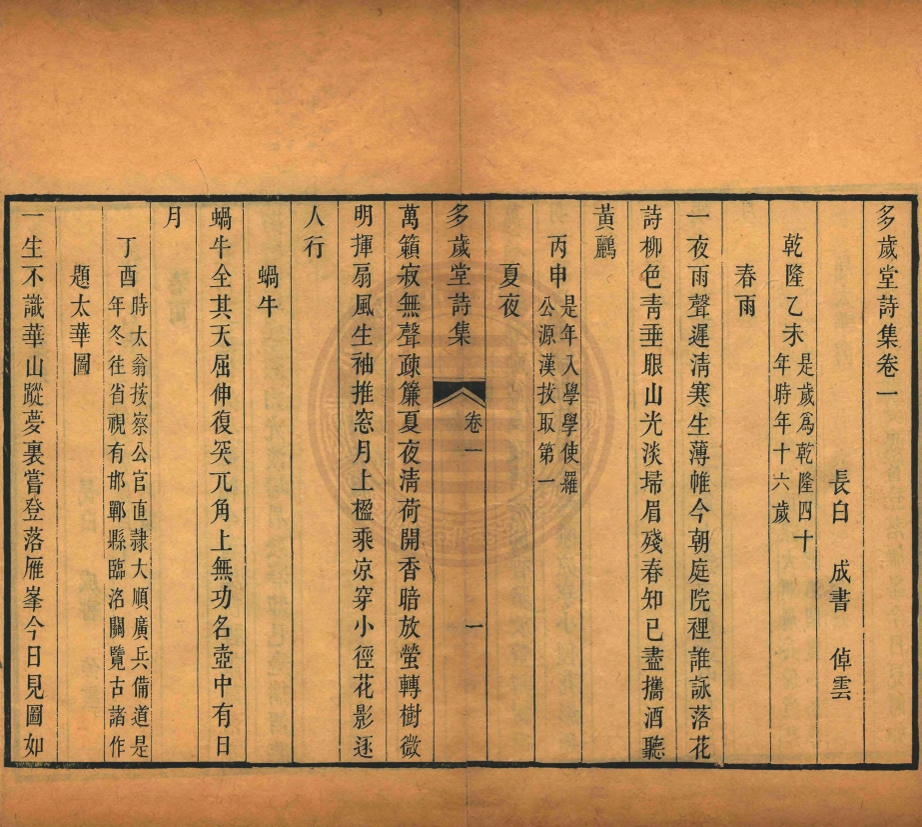 多歲堂詩集卷一
長白　成書　倬雲
乾隆乙未　是歲爲乾隆四十
年時年十六歲
春雨
一夜雨聲遲清寒生薄帷今朝庭院裡誰詠落花
詩柳色靑垂眼山光淡埽眉殘春知已盡攜酒聽
黃鸝
丙申　是年入學學使羅
公源漢拔取第一
夏夜
多歲堂詩集　卷一　一
萬籟寂無聲疎簾夏夜清荷開香暗放螢轉樹微
明揮扇風生袖推窓月上楹乘凉穿小徑花影逐
人行
蝸牛
蝸牛全其天屈伸復突兀角上無功名壺中有日
月
丁酉　時太翁按察公官直隷大順廣兵備道是
年冬往省視有邯鄲縣臨洺關覽古諸作
題太華圖
一生不識華山蹤夢裏嘗登落雁峯今日見圖如